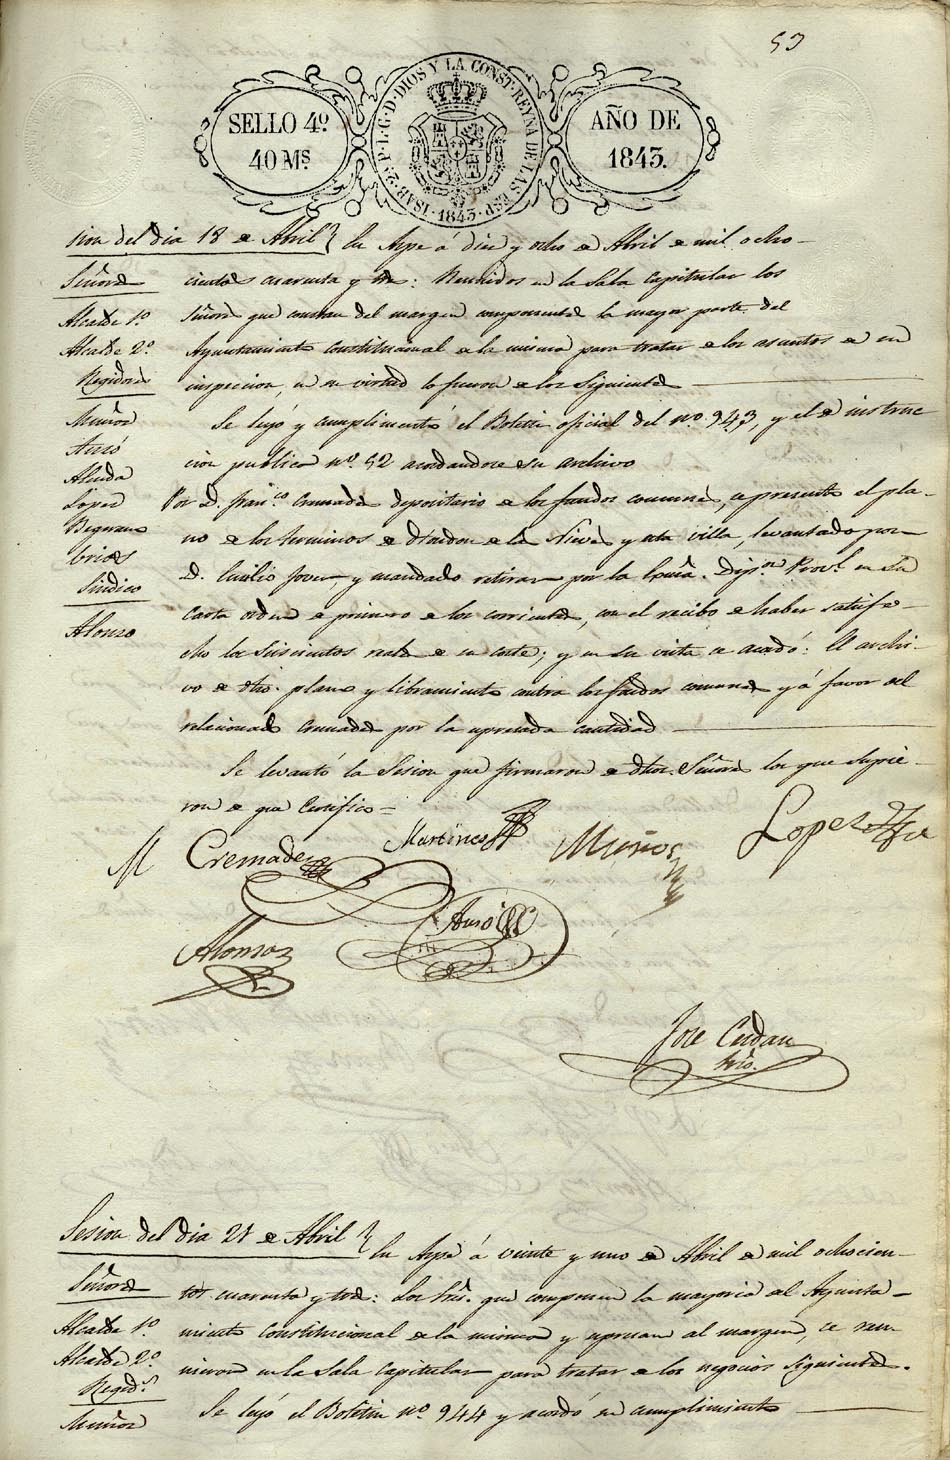 53
SELLO 4º
40 Ms
ISAB. 2ª P. L. G. D. DIOS Y LA CONST. REYNA DE LAS ESP.
1843
AÑO DE
1843.
sion del dia 18 de Abril
En Aspe á diez y ocho de Abril de mil ocho-
cientos cuarenta y tres: Reunidos en la Sala Capitular los
Señores que constan del margen componentes la mayor parte del
Ayuntamiento Constitucional de la misma para tratar de los asuntos de su
inspeccion, en su virtud lo fueron de los siguientes
Señores
Alcalde 1º
Alcalde 2º
Regidores
Muñoz
Ausó
Alcuda
Lopez
Síndico
Alonso
Se leyó y cumplimentó el Boletin oficial del nº 943, y el de instruc
cion publica nº 52 acordandose su archivo
Por D. Franco Cremades depositario de los fondos comunes, se presentó el pla-
no de los terminos de Hondon de las Nieves y esta villa, levantado por
D. Emilio Jover y mandado retirar por la Exma. Dipon Provl. en su
Carta orden de primero de los corrientes, con el recibo de haber satisfe-
cho los Seiscientos reales de su coste; y en su vista se acordó: El archi-
vo de dho. plano y libramiento contra los fondos comunes y á favor del
relacionado Cremades por la espresada cantidad
Se levantó la Sesion que firmaron de dhos Señores los que supie-
ron de que Certifico=
M Cremades
Martinez
Muños
Lopez
Alonso
Ausó
Jose Cerdan
Srio.
Sesion del dia 21 de Abril
En Aspe á veinte y uno de Abril de mil ochocien-
tos cuarenta y tres: Los Sres. que componen la mayoria del Ayunta-
miento Constitucional de la misma y espresan al margen, se reu-
nieron en la Sala Capitular para tratar de los negocios Siguientes.
Señores
Alcalde 1º
Alcalde 2º
Regids.
Muñoz
Se leyó el Boletin nº 944 y acordó su cumplimiento